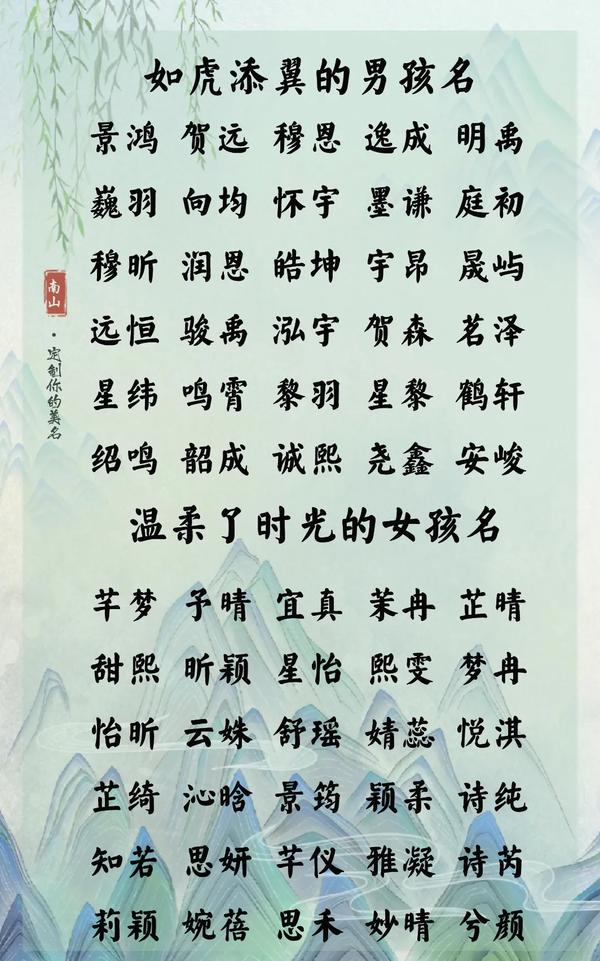 如虎添翼的男孩名
景鸿 贺远 穆恩 逸成 明禹
巍羽 向均 怀宇 墨谦 庭初
穆昕 润恩 皓坤 宇昂 晟屿
远恒 骏禹 泓宇 贺森 茗泽
星纬 鸣霄 黎羽 星黎 鹤轩
绍鸣 韶成 诚熙 尧鑫 安峻
南山
·定制你的美名
温柔了时光的女孩名
芊梦 予晴 宜真 茉冉 芷晴
甜熙 昕颖 星怡 熙雯 梦冉
怡昕 云姝 舒瑶 婧蕊 悦淇
芷绮 沁晗 景筠 颖柔 诗纯
知若 思妍 芊仪 雅凝 诗芮
莉颖 婉蓓 思禾 妙晴 兮颜